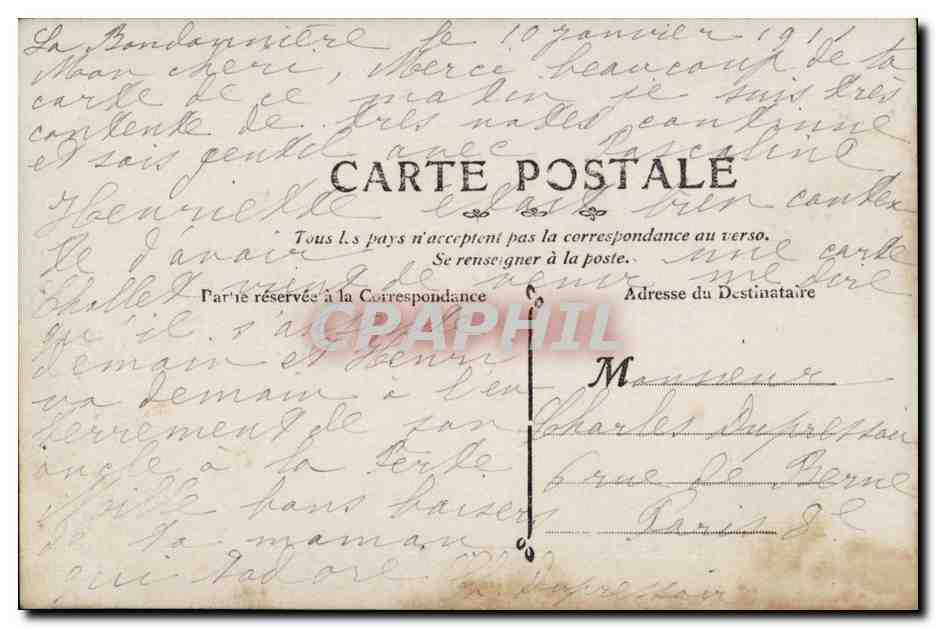 La Bondonnière le 10 janvier 1911
Mon cheri, Merci beaucoup de ta
carte de ce matin je suis très
contente de très notes continue
et sois gentil avec Pascaline
CARTE POSTALE
Henriette etait bien conten
te d'avoir une carte
Tous les pays n'acceptent pas la correspondance au verso.
Se renseigner à la poste.
Chollet vient de venir me dire
Partie réservée à la Correspondance
Adresse du Destinataire
qu'il s'
CPAPHIL
demain et Henri
va demain à l'en
terrement de son
oncle à la Ferté
Mille bons baisers
de ta maman
qui t'adore
Dupressoir
Monsieur
Charles Dupressoir
6 rue de Berne
Paris 8e